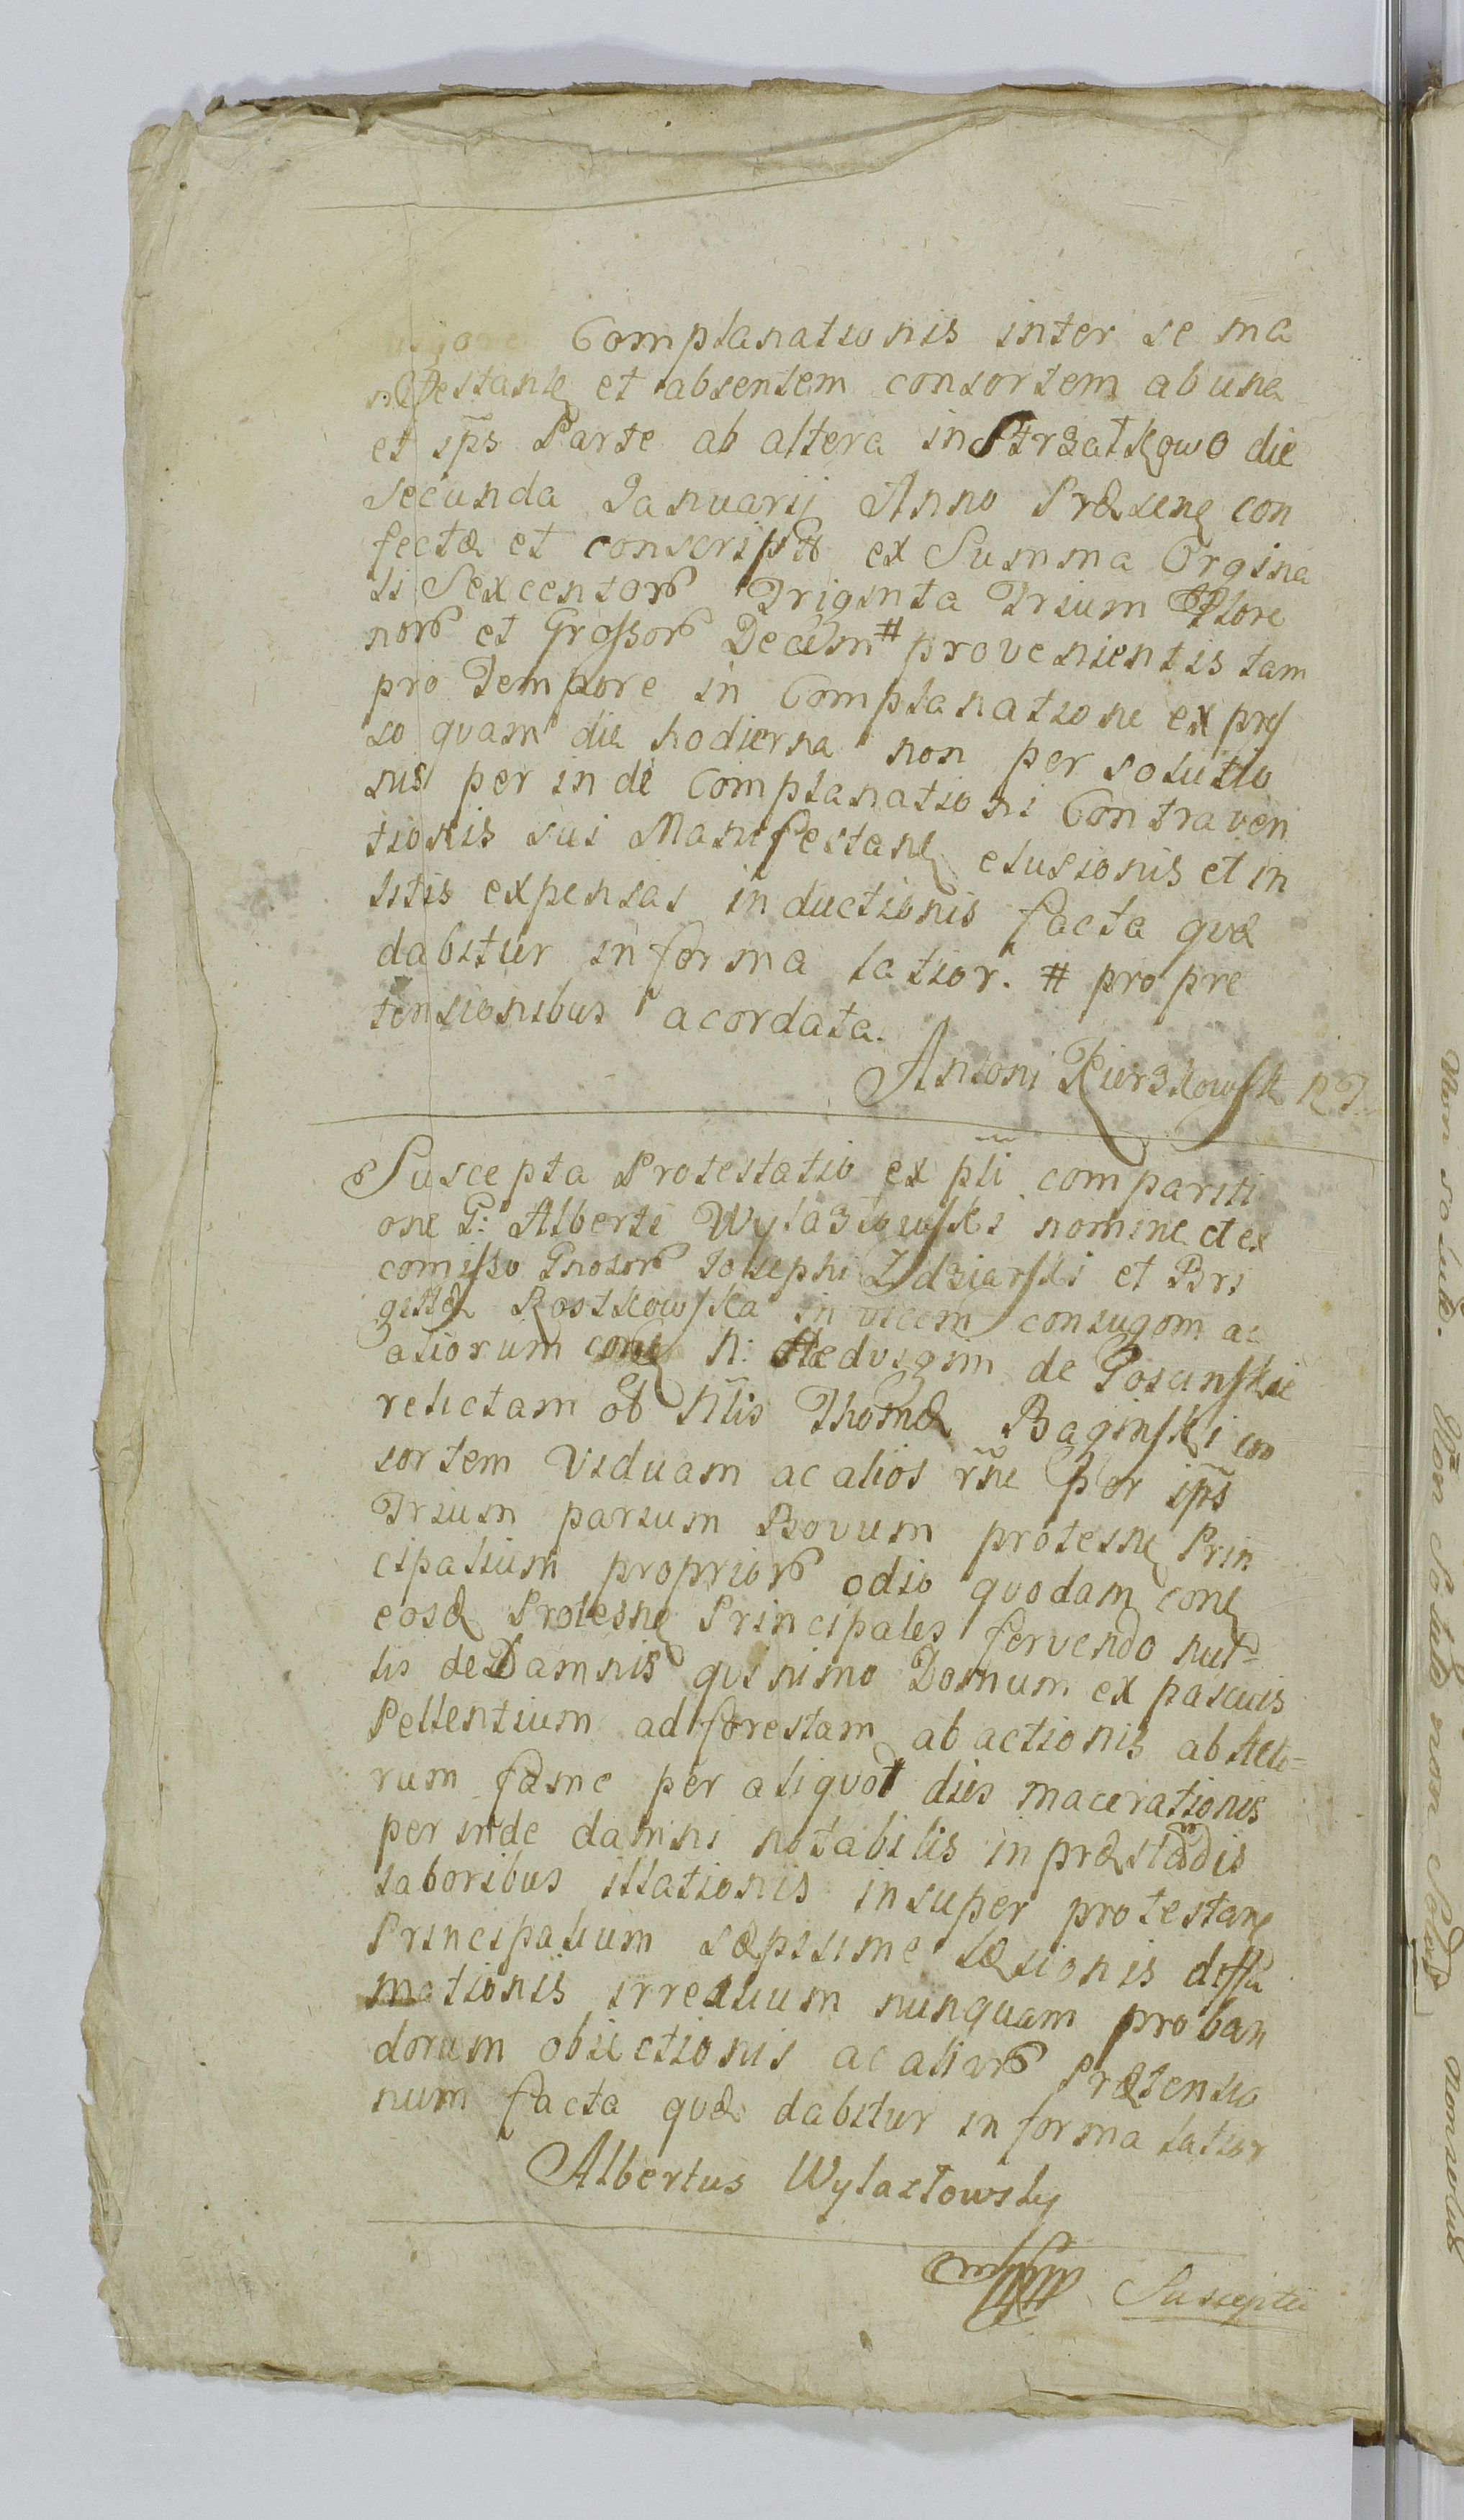 Complanationis inter se ma
nifestantę et absentem consortem ab una
et ip̃s Parte ab altera in Strzałkowo die
secunda Januarij Anno Præsenę con
fectæ et conscriptæ ex Summa Orgina
li Sexcentorũ Triginta Trium Flore
norũ et Grossorũ Decem # provenientis tam
pro Tempore in Complanatione expres
so quam die hodierna non per solutio
nis per inde Complanationi Contraven
tionis sui Manifestanę elusionis et in
litis expensas inductionis facta quæ
dabitur in forma latior. # pro pre
tensionibus acordata.
Antoni Kierzkowsk
Suscepta Protestatio ex pl̃i compariti
one G: Alberti Wylazłowski nomine et ex
comisso Gnosorũ Josephi Zdziarski et Bri
gittæ Rostkowska in vicem coniugom ac
aliorum conę N: Hedvigim de Gosciniskie
relictam ol Nl̃is Thomæ Baginski con
sortem Viduam ac alios r̃ne per ip̃s
Trium parium Bovum protesnę Prin
cipalium propriorũ odio quodam conę
eosd Protesnę Principales fervendo nul=
lis de Damnis quinimo Domum ex pascuis
Pellentium ad forestam ab actionis ab
rum fame per aliquot dies macerationis
per inde damni notabilis in præstandis
laboribus illationis insuper protestanę
Principalium sæpisime læsionis diffa
mationis irrealium nunquam proban
dorum obiectionis ac aliarũ Prætensio
num facta quæ dabitur in forma latior
Albertus Wylazłowsky
Suscepta